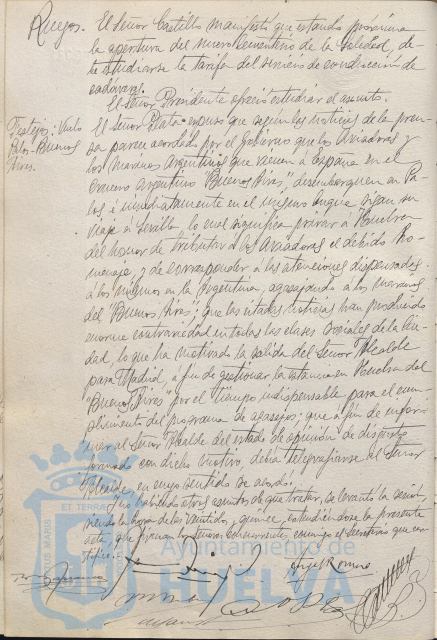 Ruegos. El Señor Castillo manifestó que estando próxima
la apertura del nuevo Cementerio de la Soledad, de-
be estudiarse la tarifa del servicio de conducción de
cadáveres.
El Señor Presidente ofreció estudiar el asunto.
Festejos: Vuelo
Palos - Buenos
Aires.
El Señor Plata expuso que según las noticias de la pren-
sa parece acordado por el Gobierno que los Aviadores y
los Marinos Argentinos que vienen a España en el
crucero argentino "Buenos Aires", desembarquen en Pa-
los é inmediatamente en el mismo buque sigan su
viaje á Sevilla, lo cual significa privar á Huelva
del honor de tributar á los Aviadores el debido ho-
menaje y de corresponder á las atenciones dispensadas
á los mismos en la Argentina, agasajando á los marinos
del "Buenos Aires"; que las citadas noticias han producido
enorme contrariedad en todas las clases sociales de la Ciu-
dad, lo que ha motivado la salida del Señor Alcalde
para Madrid, á fin de gestionar la estancia en Huelva del
"Buenos Aires" por el tiempo indispensable para el cum-
plimiento del programa de agasajos; que á fin de infor-
mar al Señor Alcalde del estado de opinión de disgusto
formado con dicho motivo, debía telegrafiarse al Señor
Alcalde, en cuyo sentido se acordó.
No habiendo otros asuntos de que tratar, se levantó la sesión,
siendo la hora de las veintidós y quince, extendiéndose la presente
acta, que firman los Señores concurrentes, conmigo el Secretario que cer-
tifico.
Ayuntamiento de
HUELVA